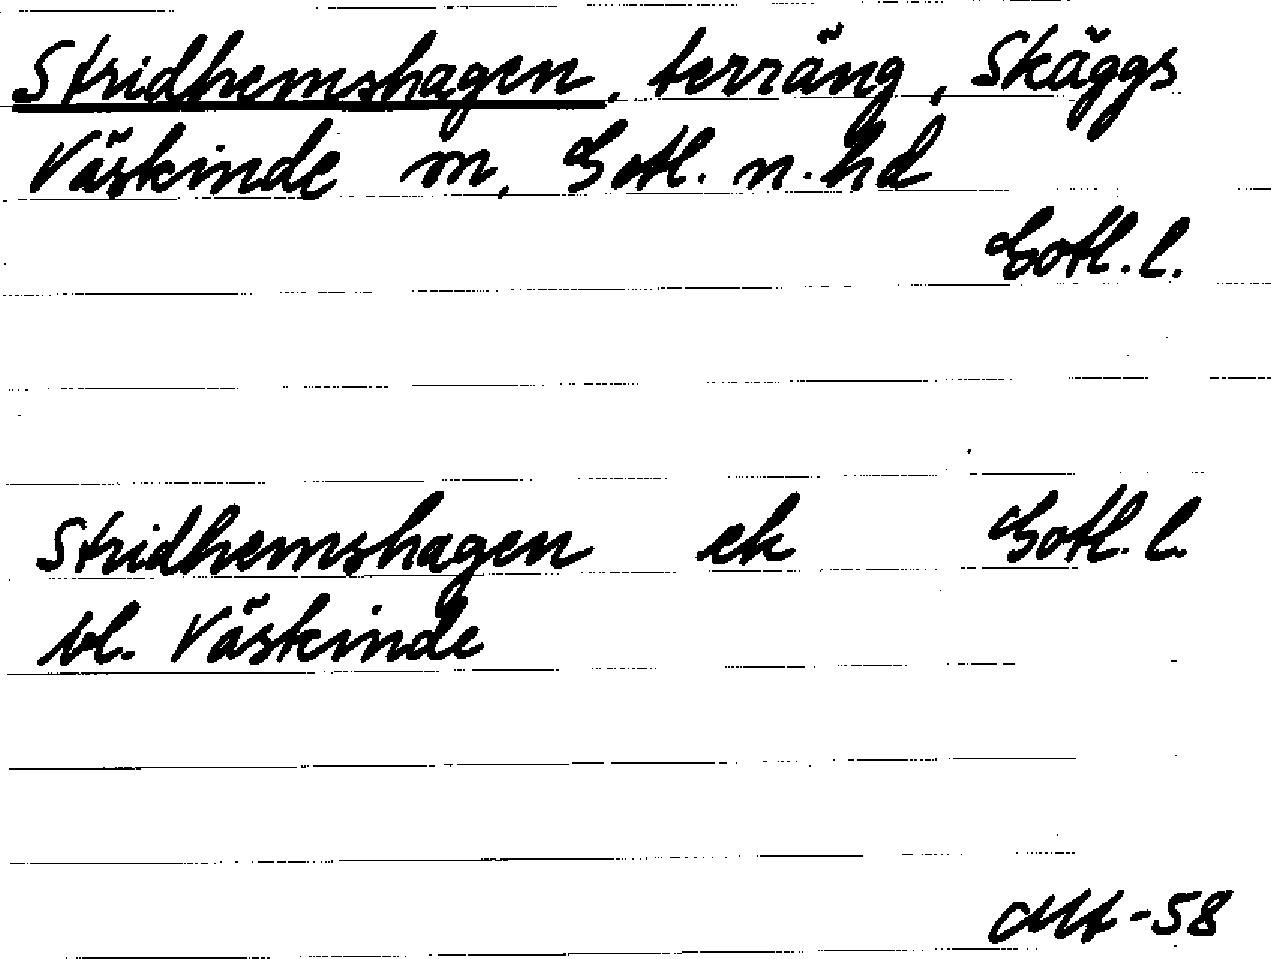 Stridhemshagen, terräng, Skäggs
Väskinde sn, Gotl. n. hd
Gotl. l.
Stridhemshagen ek Gotl. l.
bl. Väskinde
-58